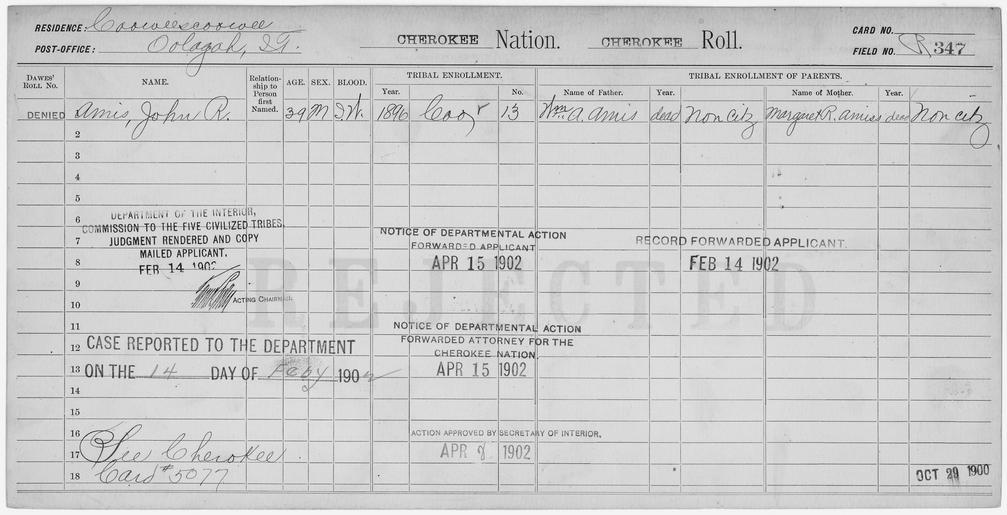 RESIDENCE: Coowescoowee
POST-OFFICE: Oolagah, I.T.
CHEROKEE Nation. CHEROKEE Roll.
CARD NO.
FIELD NO. R 347
DAWES' ROLL NO.
NAME.
Relation-ship to Person first Named.
AGE.
SEX.
BLOOD.
TRIBAL ENROLLMENT.
Year.
No.
TRIBAL ENROLLMENT OF PARENTS.
Name of Father.
Year.
Name of Mother.
Year.
DENIED Amis, John R. 39 M I.W. 1896 Coo 13 Wm. A. Amis dead Non citz Margaret R. Amiss dead Non citz
2
3
4
5
6
7
8
9
10
11
12
13
14
15
16
17
18
DEPARTMENT OF THE INTERIOR,
COMMISSION TO THE FIVE CIVILIZED TRIBES.
JUDGMENT RENDERED AND COPY
MAILED APPLICANT.
FEB 14 1902
ACTING CHAIRMAN.
NOTICE OF DEPARTMENTAL ACTION
FORWARDED APPLICANT
APR 15 1902
RECORD FORWARDED APPLICANT.
FEB 14 1902
REJECTED
NOTICE OF DEPARTMENTAL ACTION
FORWARDED ATTORNEY FOR THE
CHEROKEE NATION.
APR 15 1902
CASE REPORTED TO THE DEPARTMENT
ON THE 14 DAY OF Feby 1902
ACTION APPROVED BY SECRETARY OF INTERIOR.
APR 1902
See Cherokee
Card # 5077
OCT 29 1900